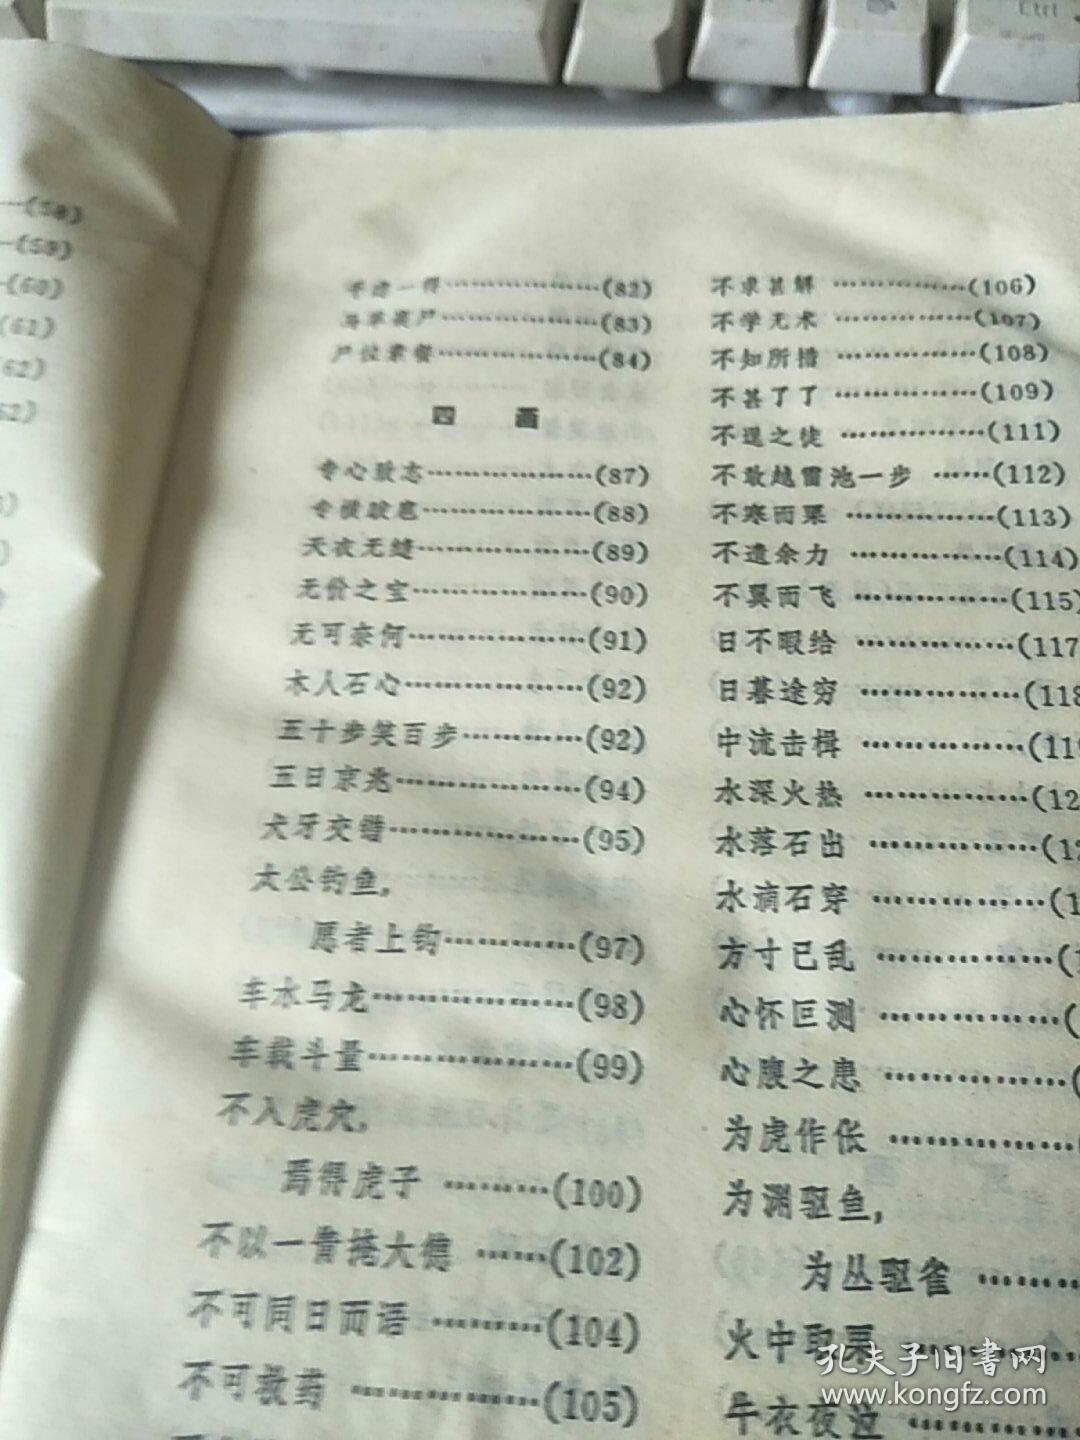 Ctrl
(58)
(59)
(60)
(61)
62)
62)
千虑一得………………(82)
马革裹尸………………(83)
尸位素餐………………(84)
四 画
专心致志………………(87)
专横跋扈………………(88)
天衣无缝………………(89)
无价之宝………………(90)
无可奈何………………(91)
木人石心………………(92)
五十步笑百步…………(92)
五日京兆………………(94)
犬牙交错………………(95)
太公钓鱼，
愿者上钩…………(97)
车水马龙………………(98)
车载斗量………………(99)
不入虎穴，
焉得虎子 ………(100)
不以一眚掩大德 ……(102)
不可同日而语 ………(104)
不可救药 ……………(105)
不求甚解 ……………(106)
不学无术 ……………(107)
不知所措 ……………(108)
不甚了了 ……………(109)
不逞之徒 ……………(111)
不敢越雷池一步 ……(112)
不寒而栗 ……………(113)
不遗余力 ……………(114)
不翼而飞 ……………(115)
日不暇给 ……………(117
日暮途穷 ……………(118
中流击楫 ……………(119
水深火热 ……………(12
水落石出 ……………(12
水滴石穿 ……………(1
方寸已乱 ……………(
心怀叵测 ……………(
心腹之患 ……………(
为虎作伥 ……………
为渊驱鱼，
为丛驱雀 ………
火中取栗 ……………
牛衣夜泣 ……………
孔夫子旧书网
www.kongfz.com